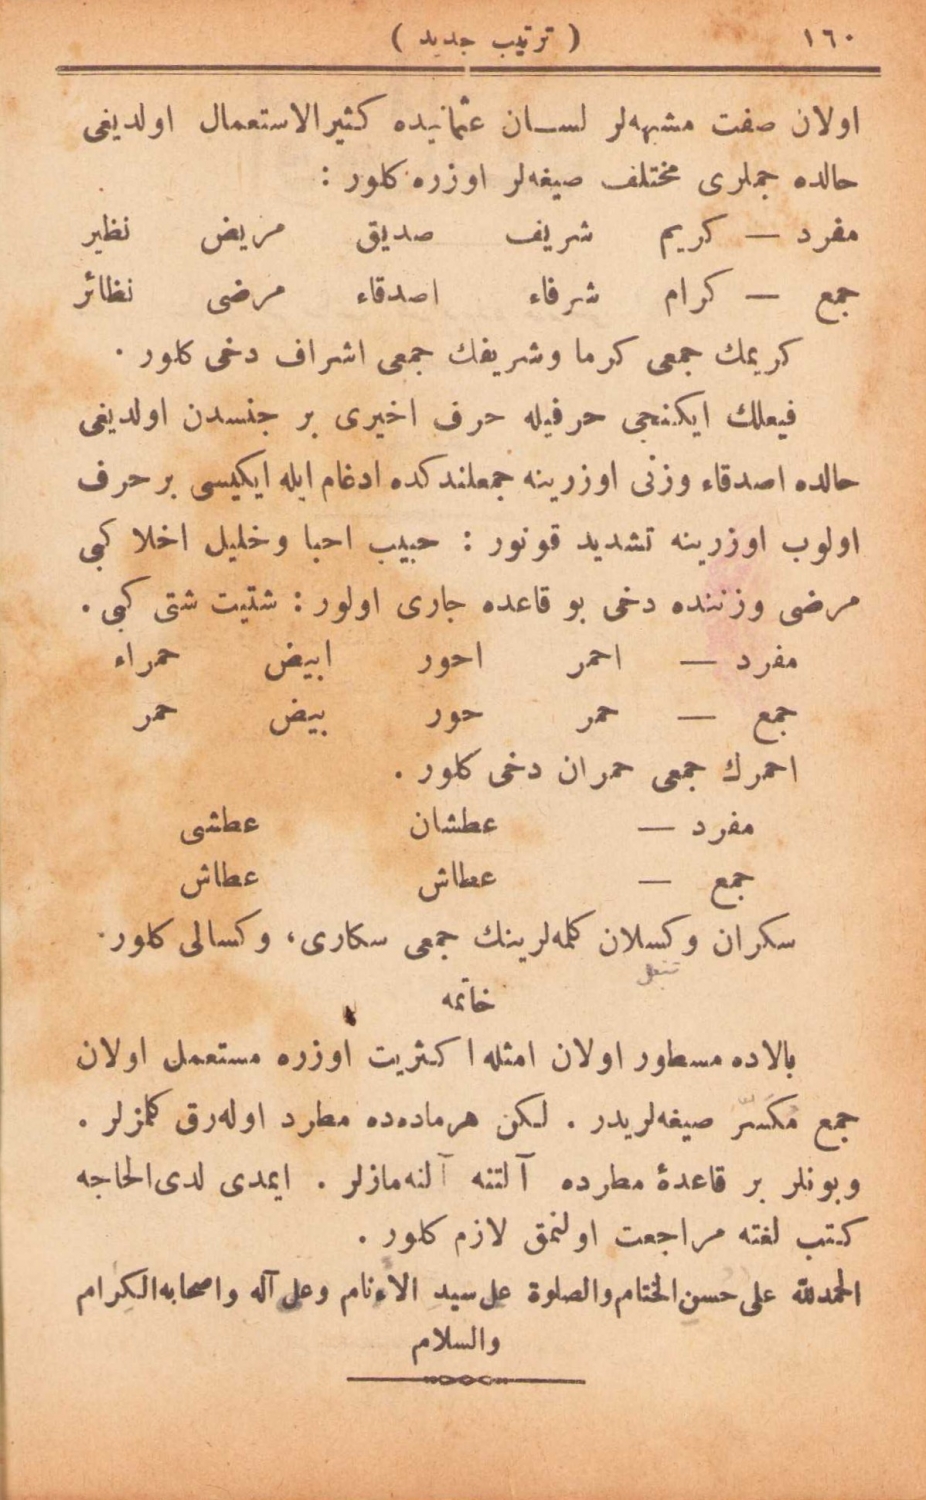 ١٦٠ ( ترتيب جديد )
اولان صفت مشبهه‌لر لســان عثمانيده كثيرالاستعمال اولديغى
حالده جمعلرى مختلف صيغه‌لر اوزره كلور :
مفرد — كريم شريف صديق مريض نظير
جمع — كرام شرفاء اصدقاء مرضى نظائر
كريمك جمعى كرما وشريفك جمعى اشراف دخى كلور .
فيعلك ايكنجى حرفيله حرف اخيرى بر جنسدن اولديغى
حالده اصدقاء وزنى اوزرينه جمعلندكده ادغام ايله ايكيسى بر حرف
اولوب اوزرينه تشديد قونور : حبيب احبا وخليل اخلا كبى
مرضى وزننده دخى بو قاعده جارى اولور : شتيت شتى كبى .
مفرد — احمر احور ابيض حمراء
جمع — حمر حور بيض حمر
احمرك جمعى حمران دخى كلور .
مفرد — عطشان عطشى
جمع — عطاش عطاش
سكران وكسلان كلمه‌لرينك جمعى سكارى، وكسالى كلور .
تنبل
خاتمه
بالاده مسطور اولان امثله اكثريت اوزره مستعمل اولان
جمع مُكَسّر صيغه‌لريدر . لكن هرماده‌ده مطرد اوله‌رق كلمزلر .
وبونلر بر قاعدۀ مطرده آلتنه آلنه‌مازلر . ايمدى لدى‌الحاجه
كتب لغته مراجعت اولنمق لازم كلور .
الحمدلله على حسن‌الختام والصلوة على سيد الأنام وعلى آله واصحابه‌الكرام
والسلام